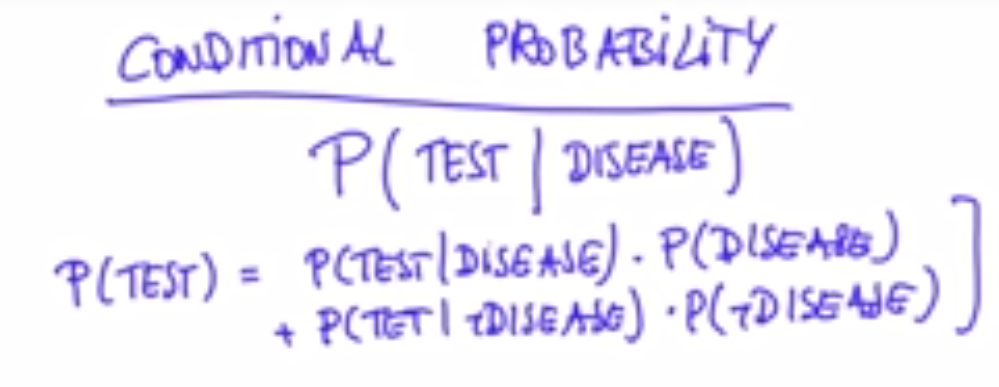 CONDITIONAL PROBABILITY
P( TEST | DISEASE )
P(TEST) = P(TEST|DISEASE) · P(DISEASE)
+ P(TET | ¬DISEASE) · P(¬DISEASE) ]